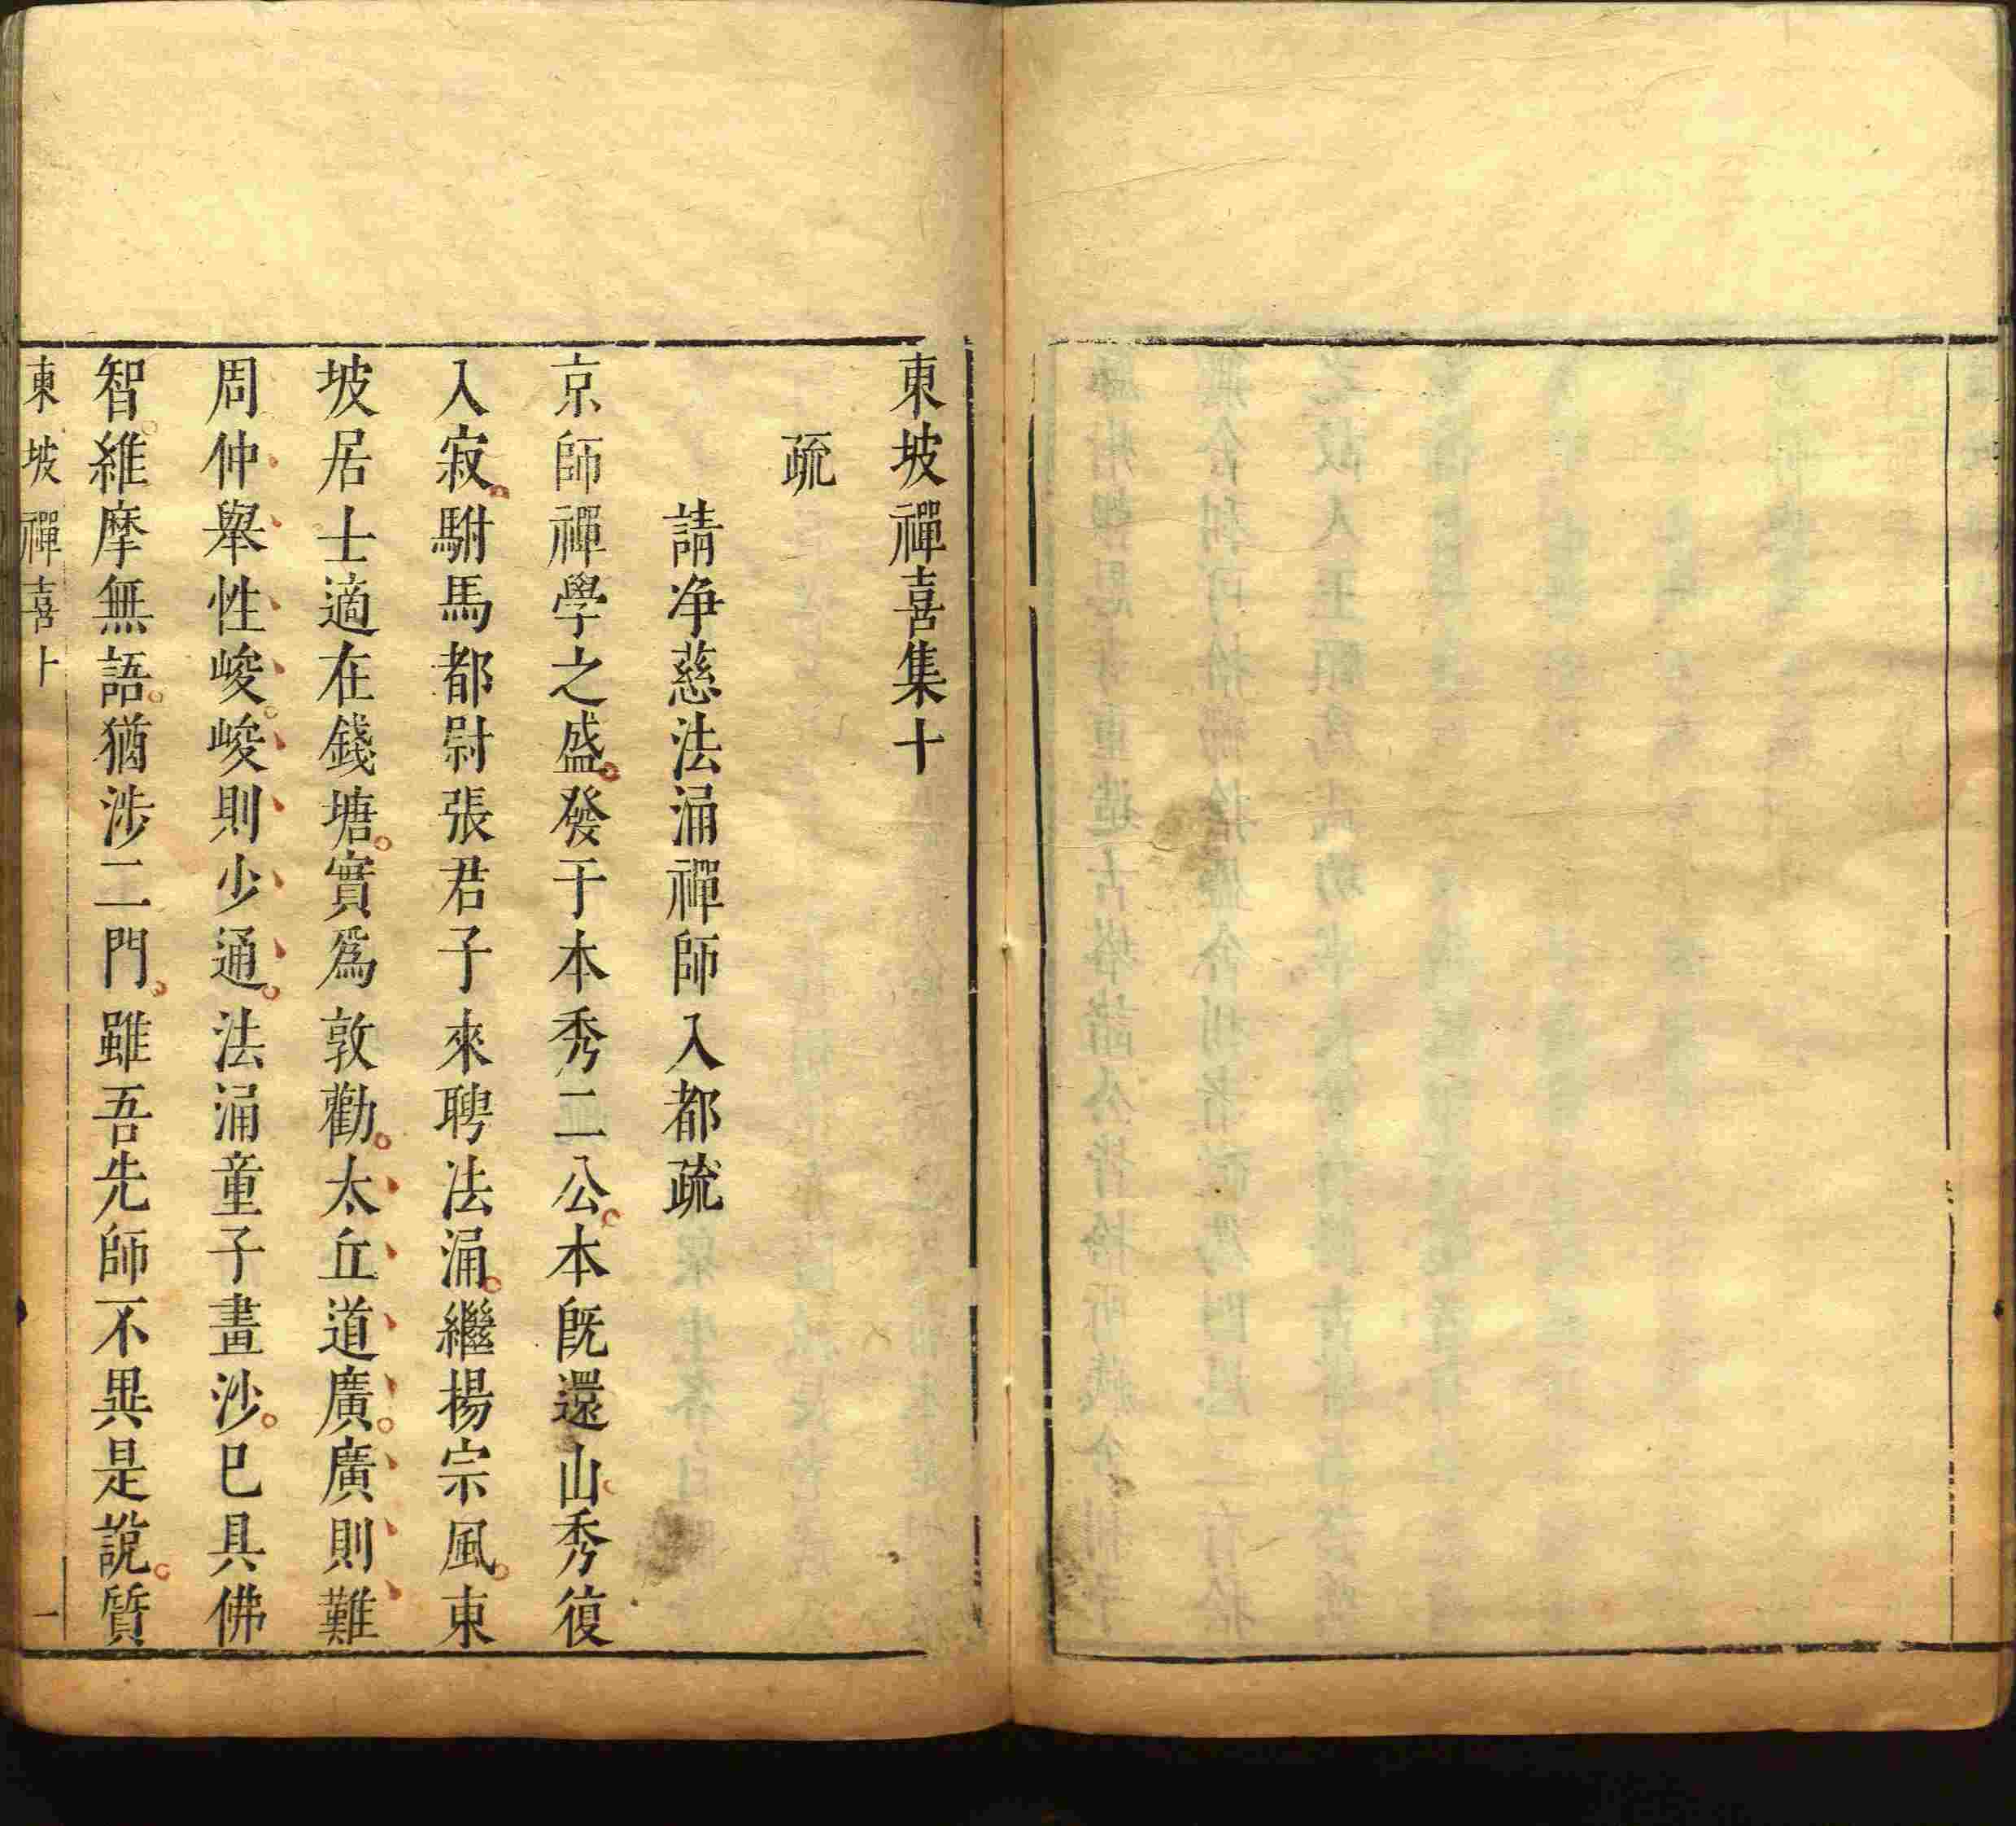 東坡禪喜集十
疏
請净慈法涌禪師入都疏
京師禪學之盛發于本秀二公本旣還山秀復
入寂駙馬都尉張君子來聘法涌繼揚宗風東
坡居士適在錢塘實爲敦勸太丘道廣廣則難
周仲舉性峻峻則少通法涌童子畫沙巳具佛
智維摩無語猶涉二門雖吾先師不異是說質
東坡禪喜十 一